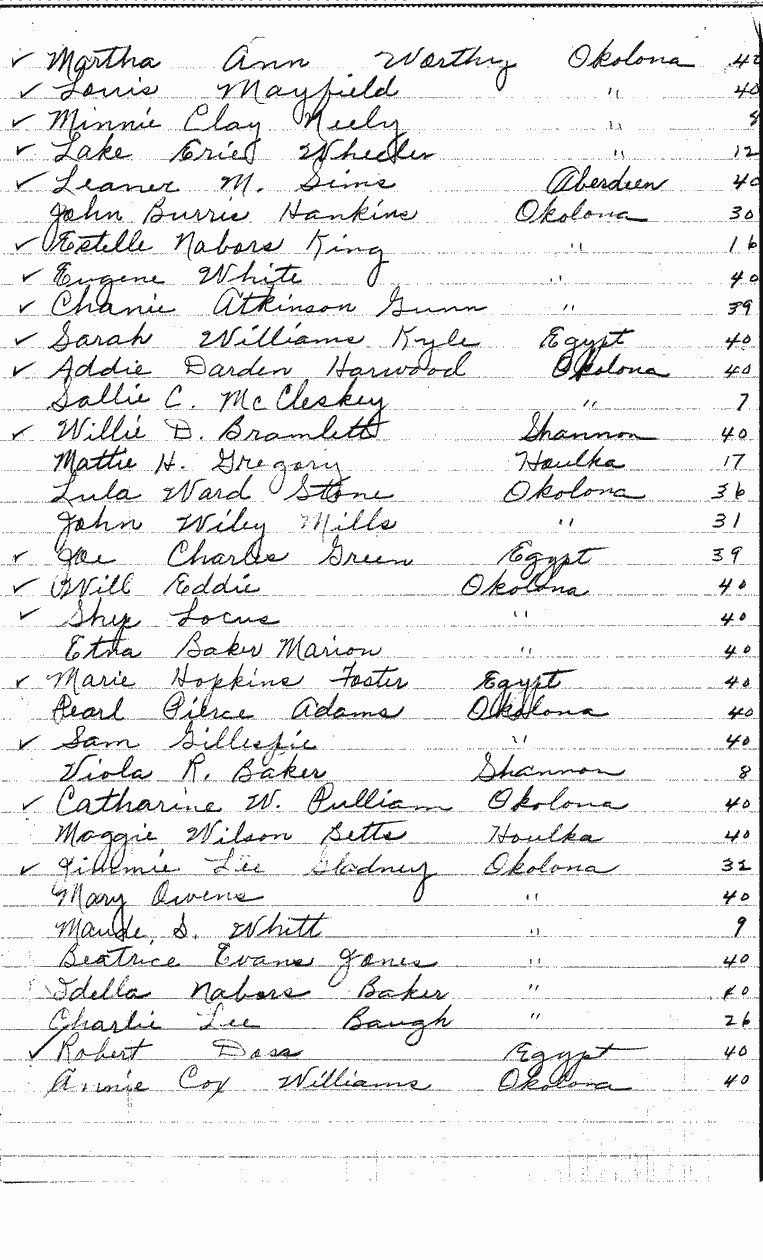 ✓ Martha Ann Worthy Okolona 40
✓ Louis Mayfield " 40
✓ Minnie Clay Neely " 8
✓ Lake Erie Wheeler " 12
✓ Leaner M. Sims Aberdeen 40
John Burris Hankins Okolona 30
✓ Estelle Nabors King " 16
✓ Eugene White " 40
✓ Chanie Atkinson Gunn " 39
✓ Sarah Williams Kyle Egypt 40
✓ Addie Darden Harwood Okolona 40
Sallie C. McCleskey " 7
✓ Willie D. Bramlett Shannon 40
Mattie H. Gregory Houlka 17
Lula Ward Stone Okolona 36
John Wiley Mills " 31
✓ Joe Charles Green Egypt 39
✓ Will Eddie Okolona 40
✓ Shep Locus " 40
Etna Baker Marion " 40
✓ Marie Hopkins Foster Egypt 40
Pearl Pierce Adams Okolona 40
✓ Sam Gillespie " 40
Viola R. Baker Shannon 8
✓ Catharine W. Pulliam Okolona 40
Maggie Wilson Betts Houlka 40
✓ Jimmie Lee Gladney Okolona 32
Mary Owens " 40
Maude S. Whitt " 9
Beatrice Evans Jones " 40
Idella Nabors Baker " 40
Charlie Lee Baugh " 26
✓ Robert Doss Egypt 40
Annie Cox Williams Okolona 40